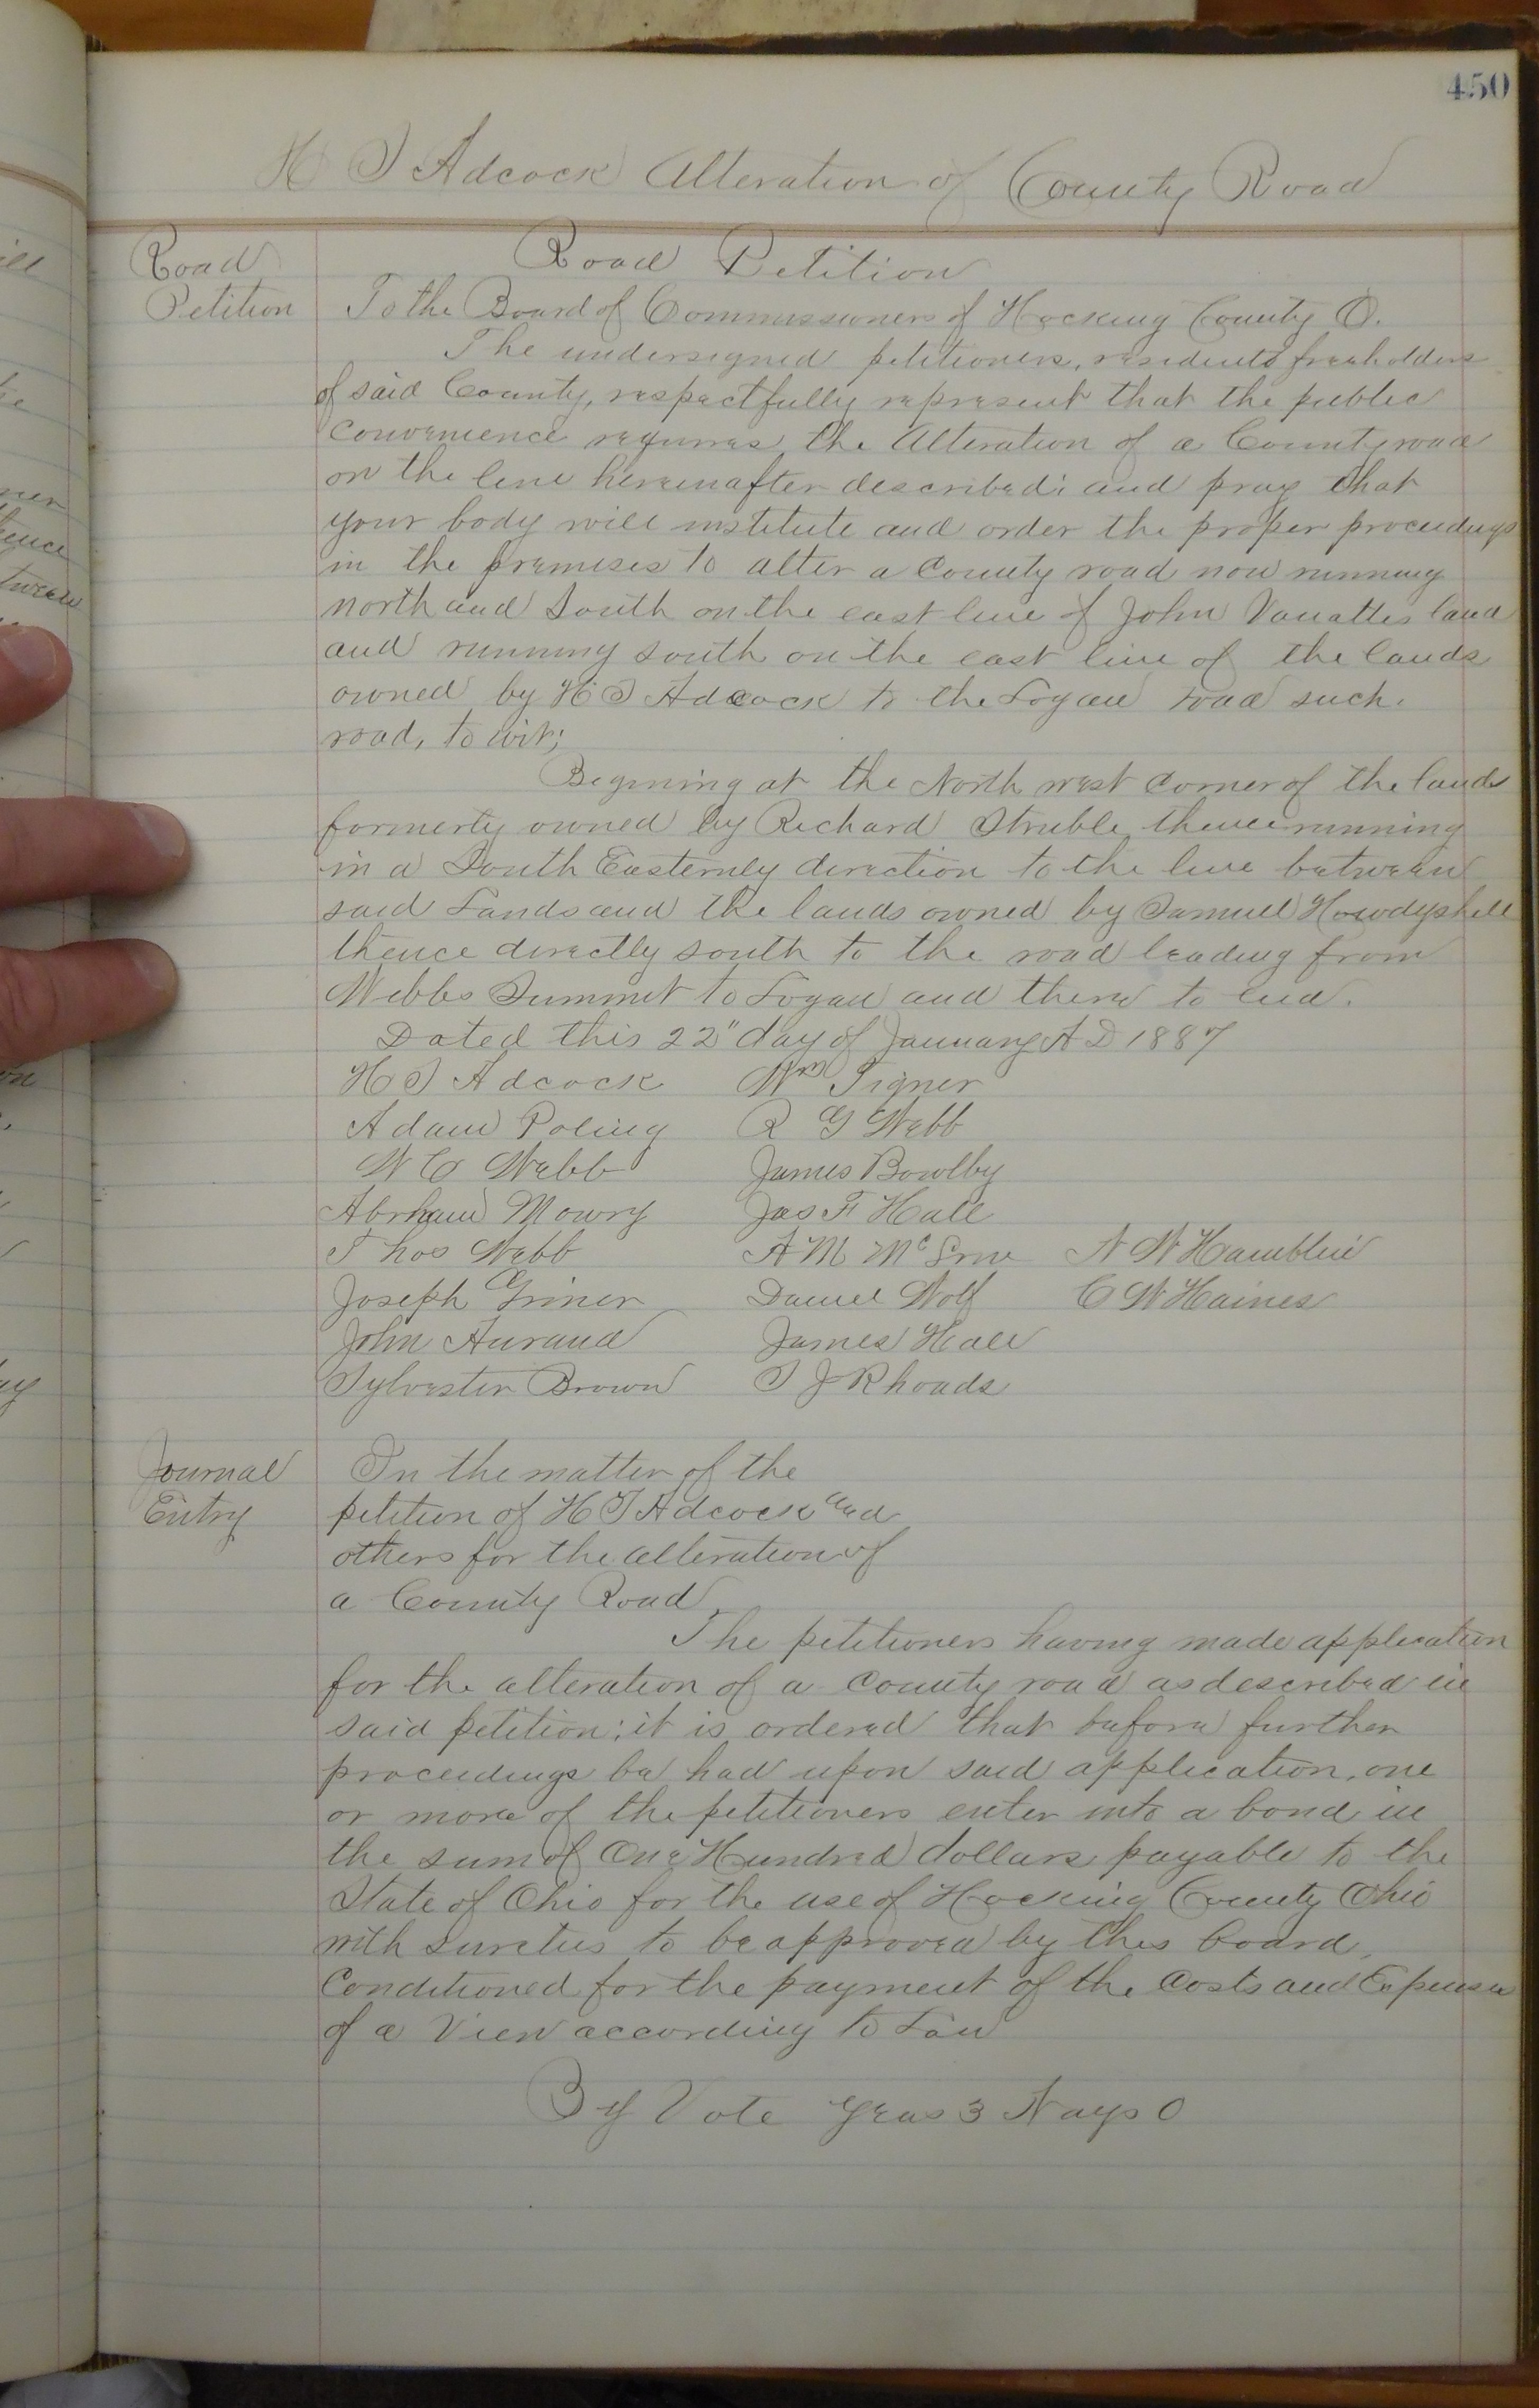 450
H T Adcock Alteration of County Road
Road Petition
Road
Petition
To the Board of Commissioners of Hocking County O.
The undersigned petitioners, residents freeholders
of said County, respectfully represent that the public
convenience requires the Alteration of a County road
on the line hereinafter described; and pray that
your body will institute and order the proper proceedings
in the premises to alter a County road now running
north and South on the east line of John Vanattes land
and running south on the east line of the lands
owned by H T Adcock to the Logan road such
road, to wit;
Begining at the North west Corner of the lands
formerly owned by Richard Struble, thence running
in a South Easternly direction to the line between
said Lands and the lands owned by Samuel Howdyshell
thence directly south to the road leading from
Webbs Summit to Logan and there to end.
Dated this 22" day of January A D 1887
H T Adcock Wm Tigner
Adam Poling R G Webb
W C Webb James Bowlby
Abrham Mowry Jas F Hall
Thos Webb A M Mc N W Hamblin
Joseph Griner Daniel Wolf C W Haines
John Aurand James Hall
Sylvester Brown S J Rhoads
Journal
Entry
In the matter of the
petition of H T Adcock and
others for the alteration of
a County Road
The petitioners having made application
for the alteration of a County road as described in
said petition; it is ordered that before further
proceedings be had upon said application, one
or more of the petitioners enter into a bond in
the sum of One Hundred dollars payable to the
State of Ohio for the use of Hocking County Ohio
with sureties to be approved by this board,
Conditioned for the payment of the Costs and Expenses
of a View according to Law
By Vote Yeas 3 Nays 0